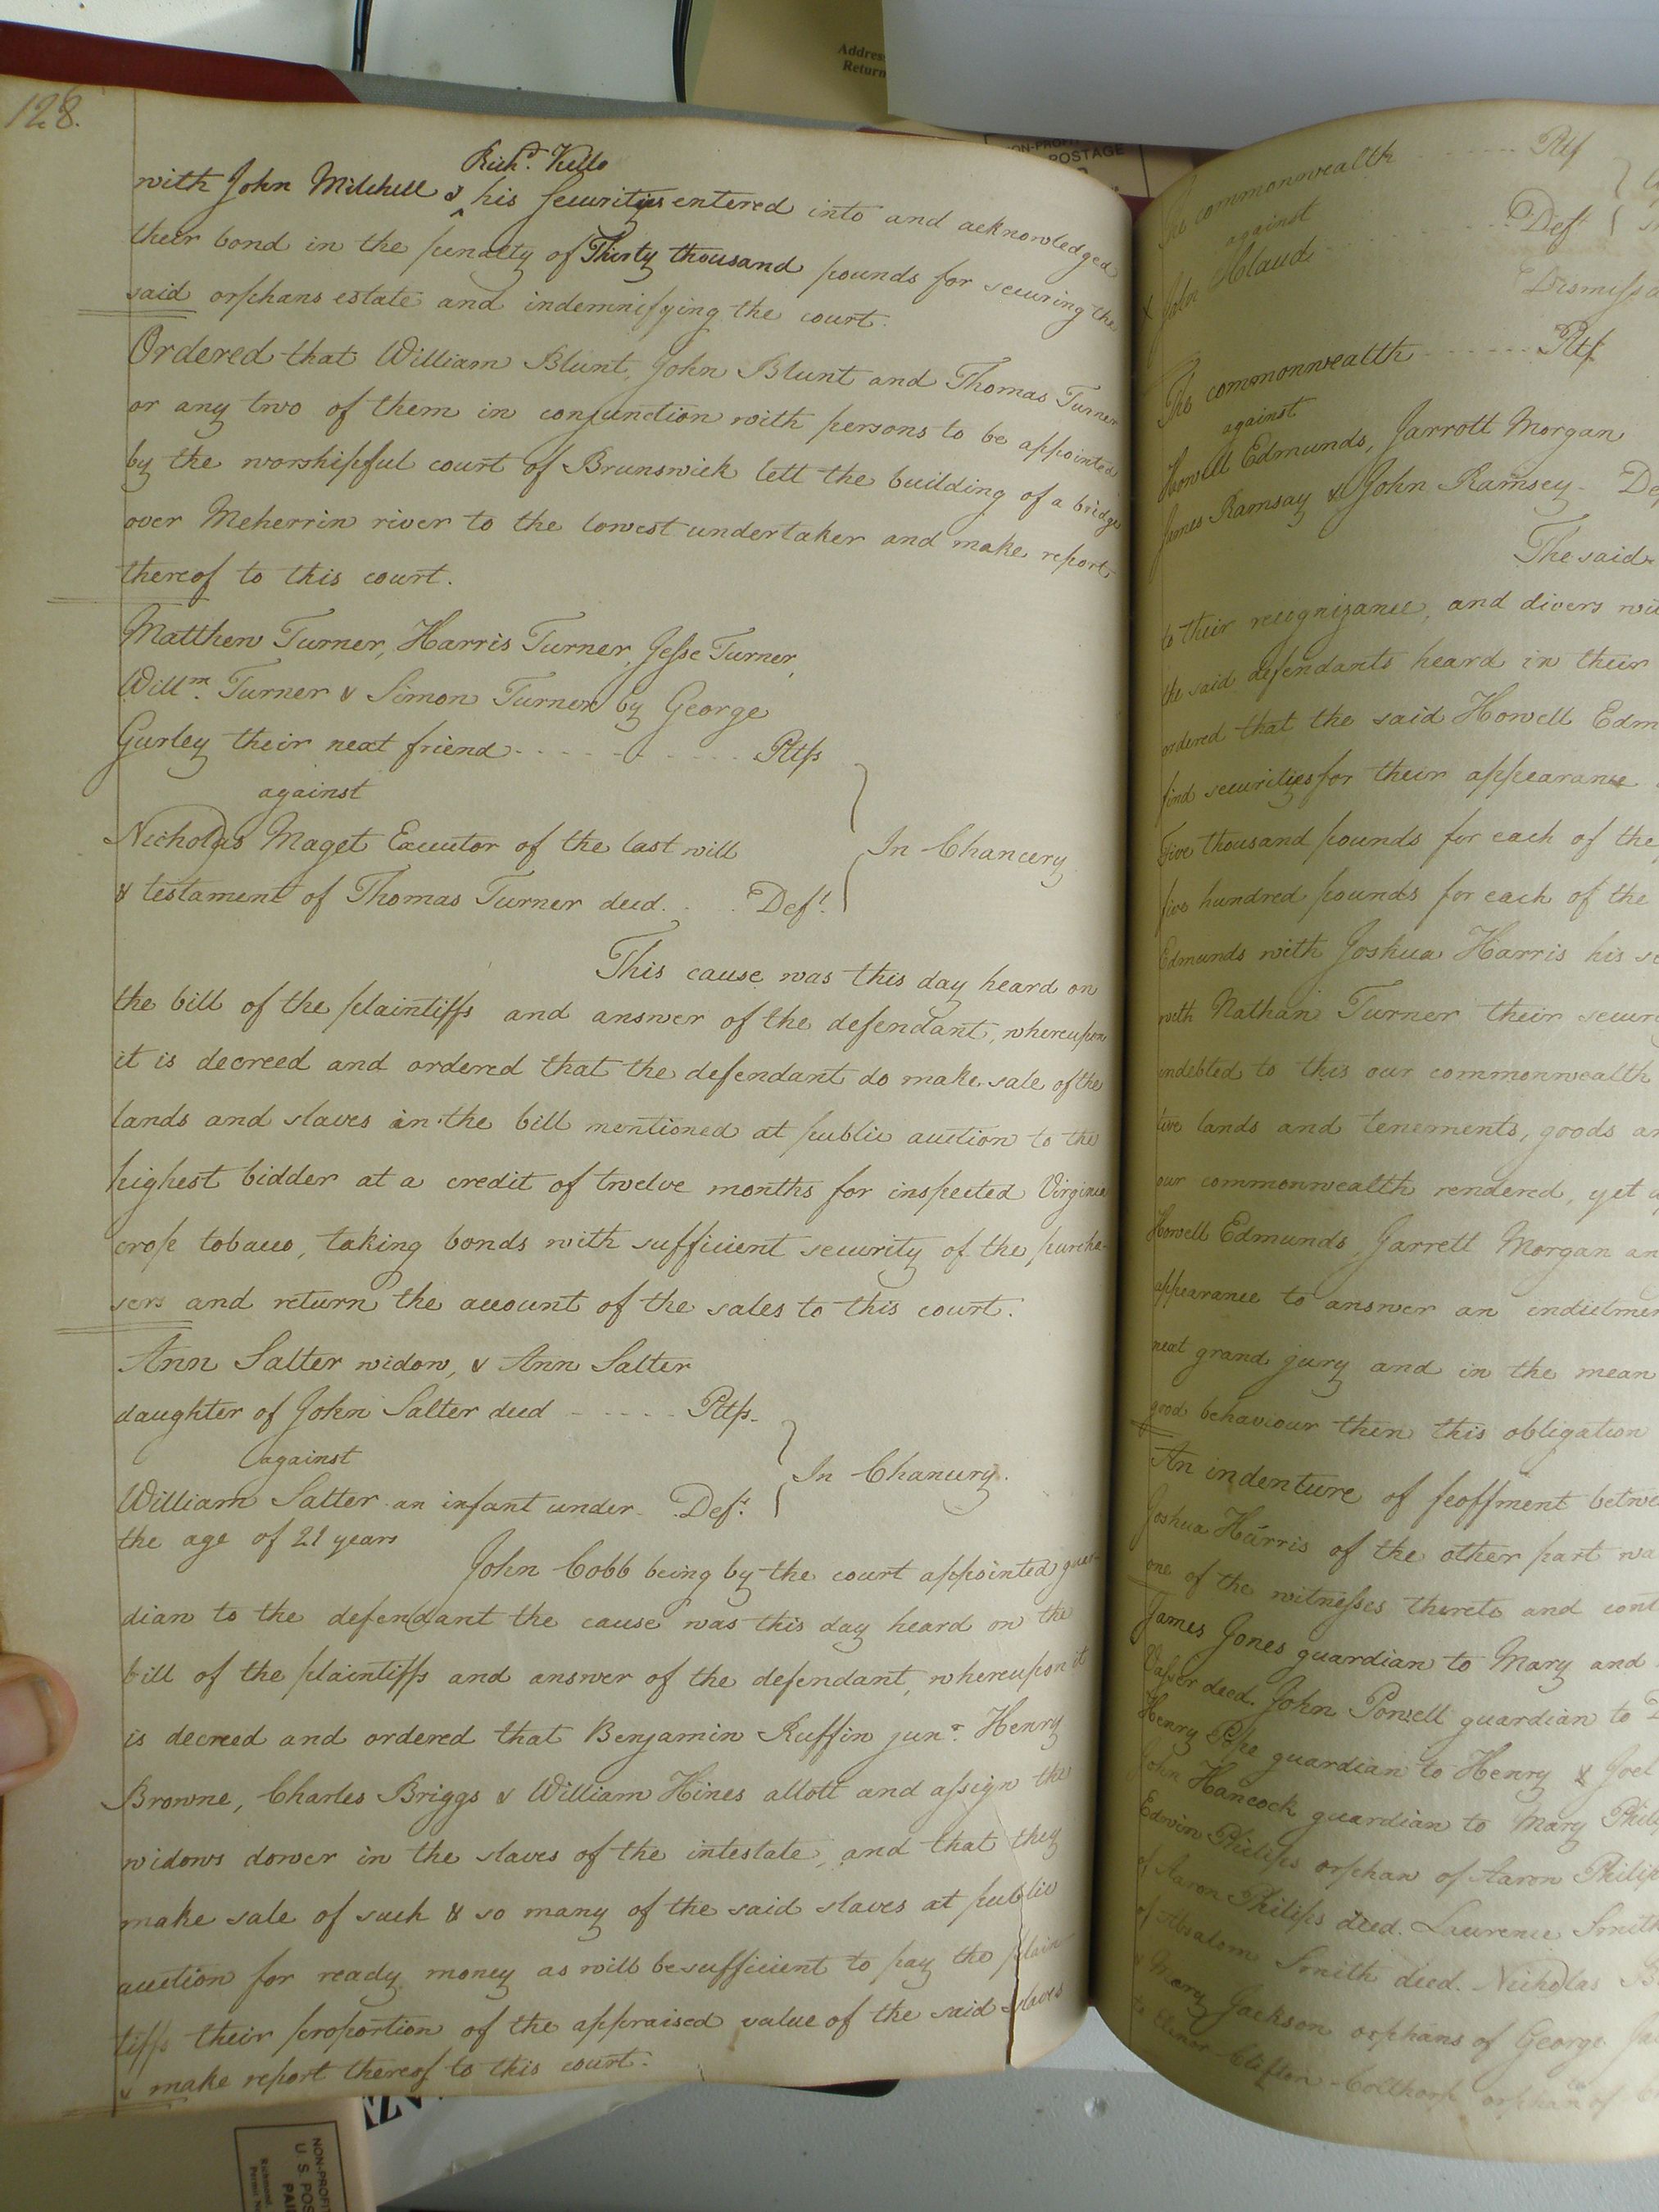 128.
Rich.d Kello
with John Mitchell & ^ his securities entered into and acknowledged
their bond in the penalty of Thirty thousand pounds for securing the
said orphans estate and indemnifying the court.
Ordered that William Blunt, John Blunt and Thomas Turner
or any two of them in conjunction with persons to be appointed
by the worshipful court of Brunswick lett the building of a bridge
over Meherrin river to the lowest undertaker and make report
thereof to this court.
Matthew Turner, Harris Turner, Jesse Turner,
Will.m Turner & Simon Turner by George
Gurley their next friend - - - - - - - Pltfs
against
Nicholas Maget Executor of the last will
& testament of Thomas Turner decd. . . . Def.t
In Chancery
This cause was this day heard on
the bill of the plaintiffs and answer of the defendant, whereupon
it is decreed and ordered that the defendant do make sale of the
lands and slaves in the bill mentioned at public auction to the
highest bidder at a credit of twelve months for inspected Virginia
crop tobacco, taking bonds with sufficient security of the purcha-
sers and return the account of the sales to this court.
Ann Salter widow, & Ann Salter
daughter of John Salter decd - - - - - Pltfs.
against
William Salter an infant under Def.t
the age of 21 years
In Chancery.
John Cobb being by the court appointed guar-
dian to the defendant the cause was this day heard on the
bill of the plaintiffs and answer of the defendant, whereupon it
is decreed and ordered that Benjamin Ruffin jun.r Henry
Browne, Charles Briggs & William Hines allott and assign the
widows dower in the slaves of the intestate, and that they
make sale of such & so many of the said slaves at public
auction for ready money as will be sufficient to pay the plain-
tiffs their proportion of the appraised value of the said slaves
& make report thereof to this court.
The commonwealth - - - - - - Pltf
against
John Claud - - - - - - - Def.t
Dismiss
The commonwealth - - - - - - Pltf
against
Howell Edmunds, Jarrott Morgan
James Ramsay & John Ramsey - De
The said
to their recognizance, and divers
the said defendants heard in their
ordered that the said Howell Edm
find securities for their appearance
Five thousand pounds for each of the
five hundred pounds for each of the
Edmunds with Joshua Harris his
with Nathan Turner their secur
indebted to this our commonwealth
tive lands and tenements, goods
our commonwealth rendered, yet
Howell Edmunds, Jarrett Morgan an
appearance to answer an indictmen
next grand jury and in the mean
good behaviour then this obligation
An indenture of feoffment betwe
Joshua Harris of the other part wa
one of the witnesses thereto and cont
James Jones guardian to Mary and
Vasser decd. John Powell guardian to
Henry Pope guardian to Henry & Joel
John Hancock guardian to Mary Philip
Edwin Philips orphan of Aaron Philip
of Aaron Philips decd. Laurence Smith
of Absalom Smith decd. Nicholas
& Mary Jackson orphans of George Ja
to Elenor Clifton Colthorp orphan of
Address
Return
NON-PROFIT
POSTAGE
NON-PROFIT
U. S. POS
PAI
Richmond
Permit No